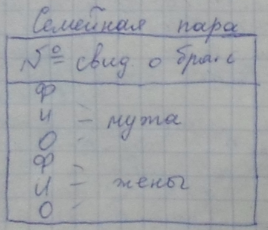 Семейная пара
№ свид о браке
Ф
И - мужа
О
Ф
И - жены
О